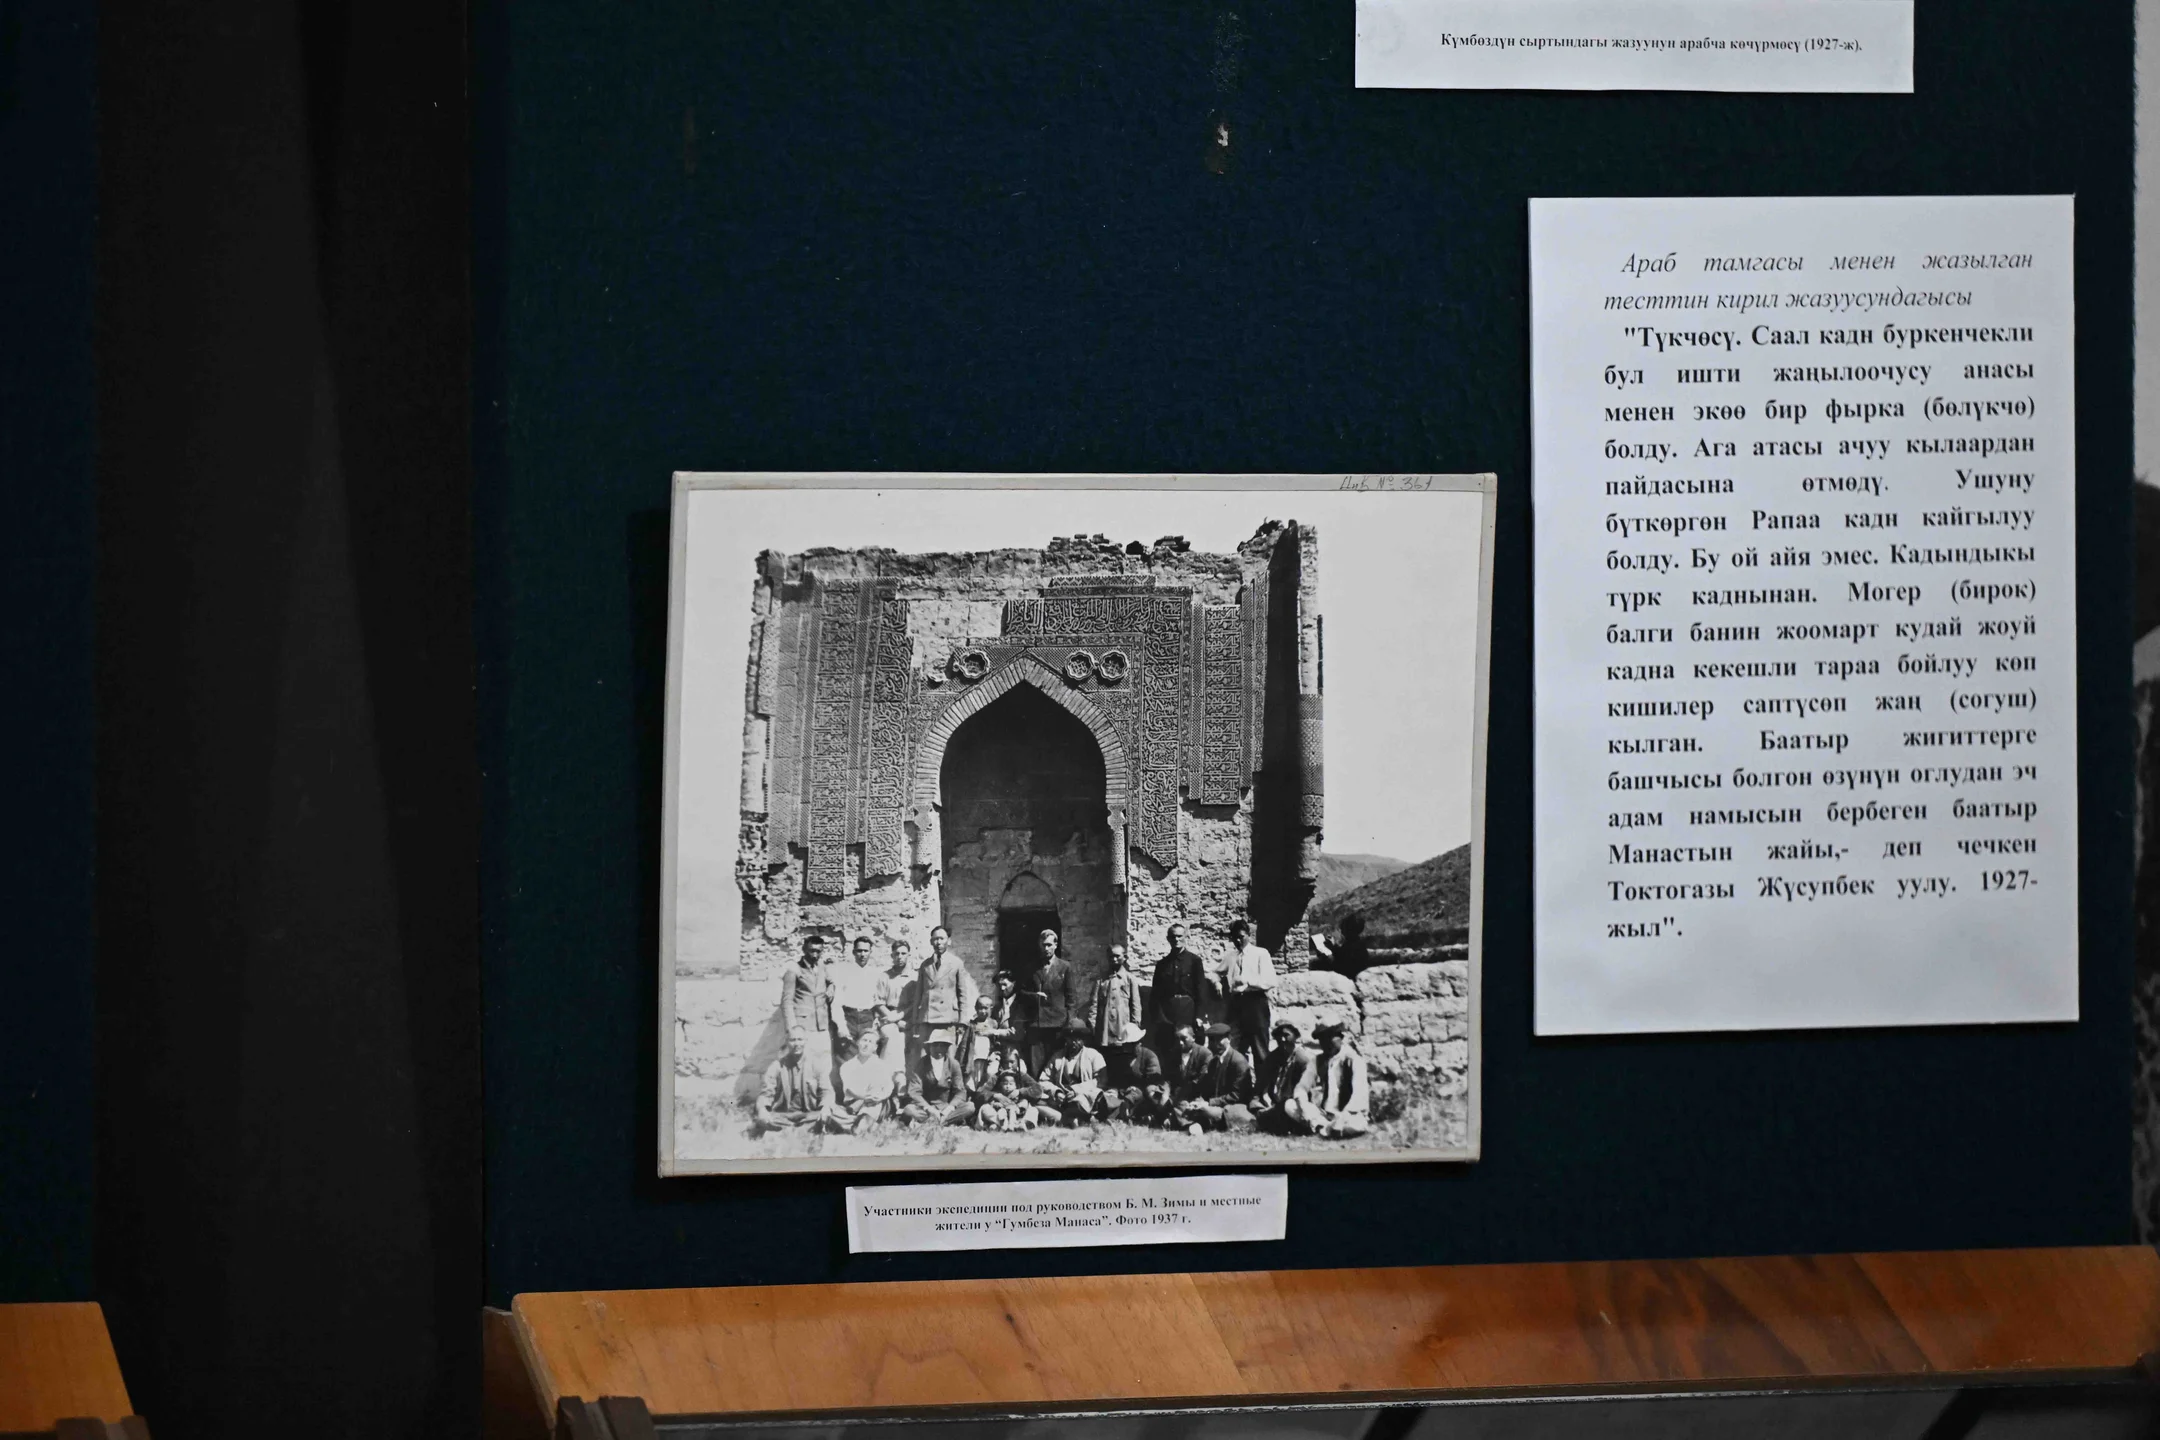 Күмбөздүн сыртындагы жазуунун арабча көчүрмөсү (1927-ж).
Араб тамгасы менен жазылган
тесттин кирил жазуусундагысы
"Түкчөсү. Саал кадн буркенчекли
бул ишти жаңылоочусу анасы
менен экөө бир фырка (бөлүкчө)
болду. Ага атасы ачуу кылаардан
пайдасына өтмөдү. Ушуну
бүткөргөн Рапаа кадн кайгылуу
болду. Бу ой айя эмес. Кадындыкы
түрк каднынан. Могер (бирок)
балги банин жоомарт кудай жоуй
кадна кекешли тараа бойлуу көп
кишилер саптүсөп жаң (согуш)
кылган. Баатыр жигиттерге
башчысы болгон өзүнүн оглудан эч
адам намысын бербеген баатыр
Манастын жайы,- деп чечкен
Токтогазы Жүсупбек уулу. 1927-
жыл".
№ 361
Участники экспедиции под руководством Б. М. Зимы и местные
жители у “Гумбеза Манаса”. Фото 1937 г.